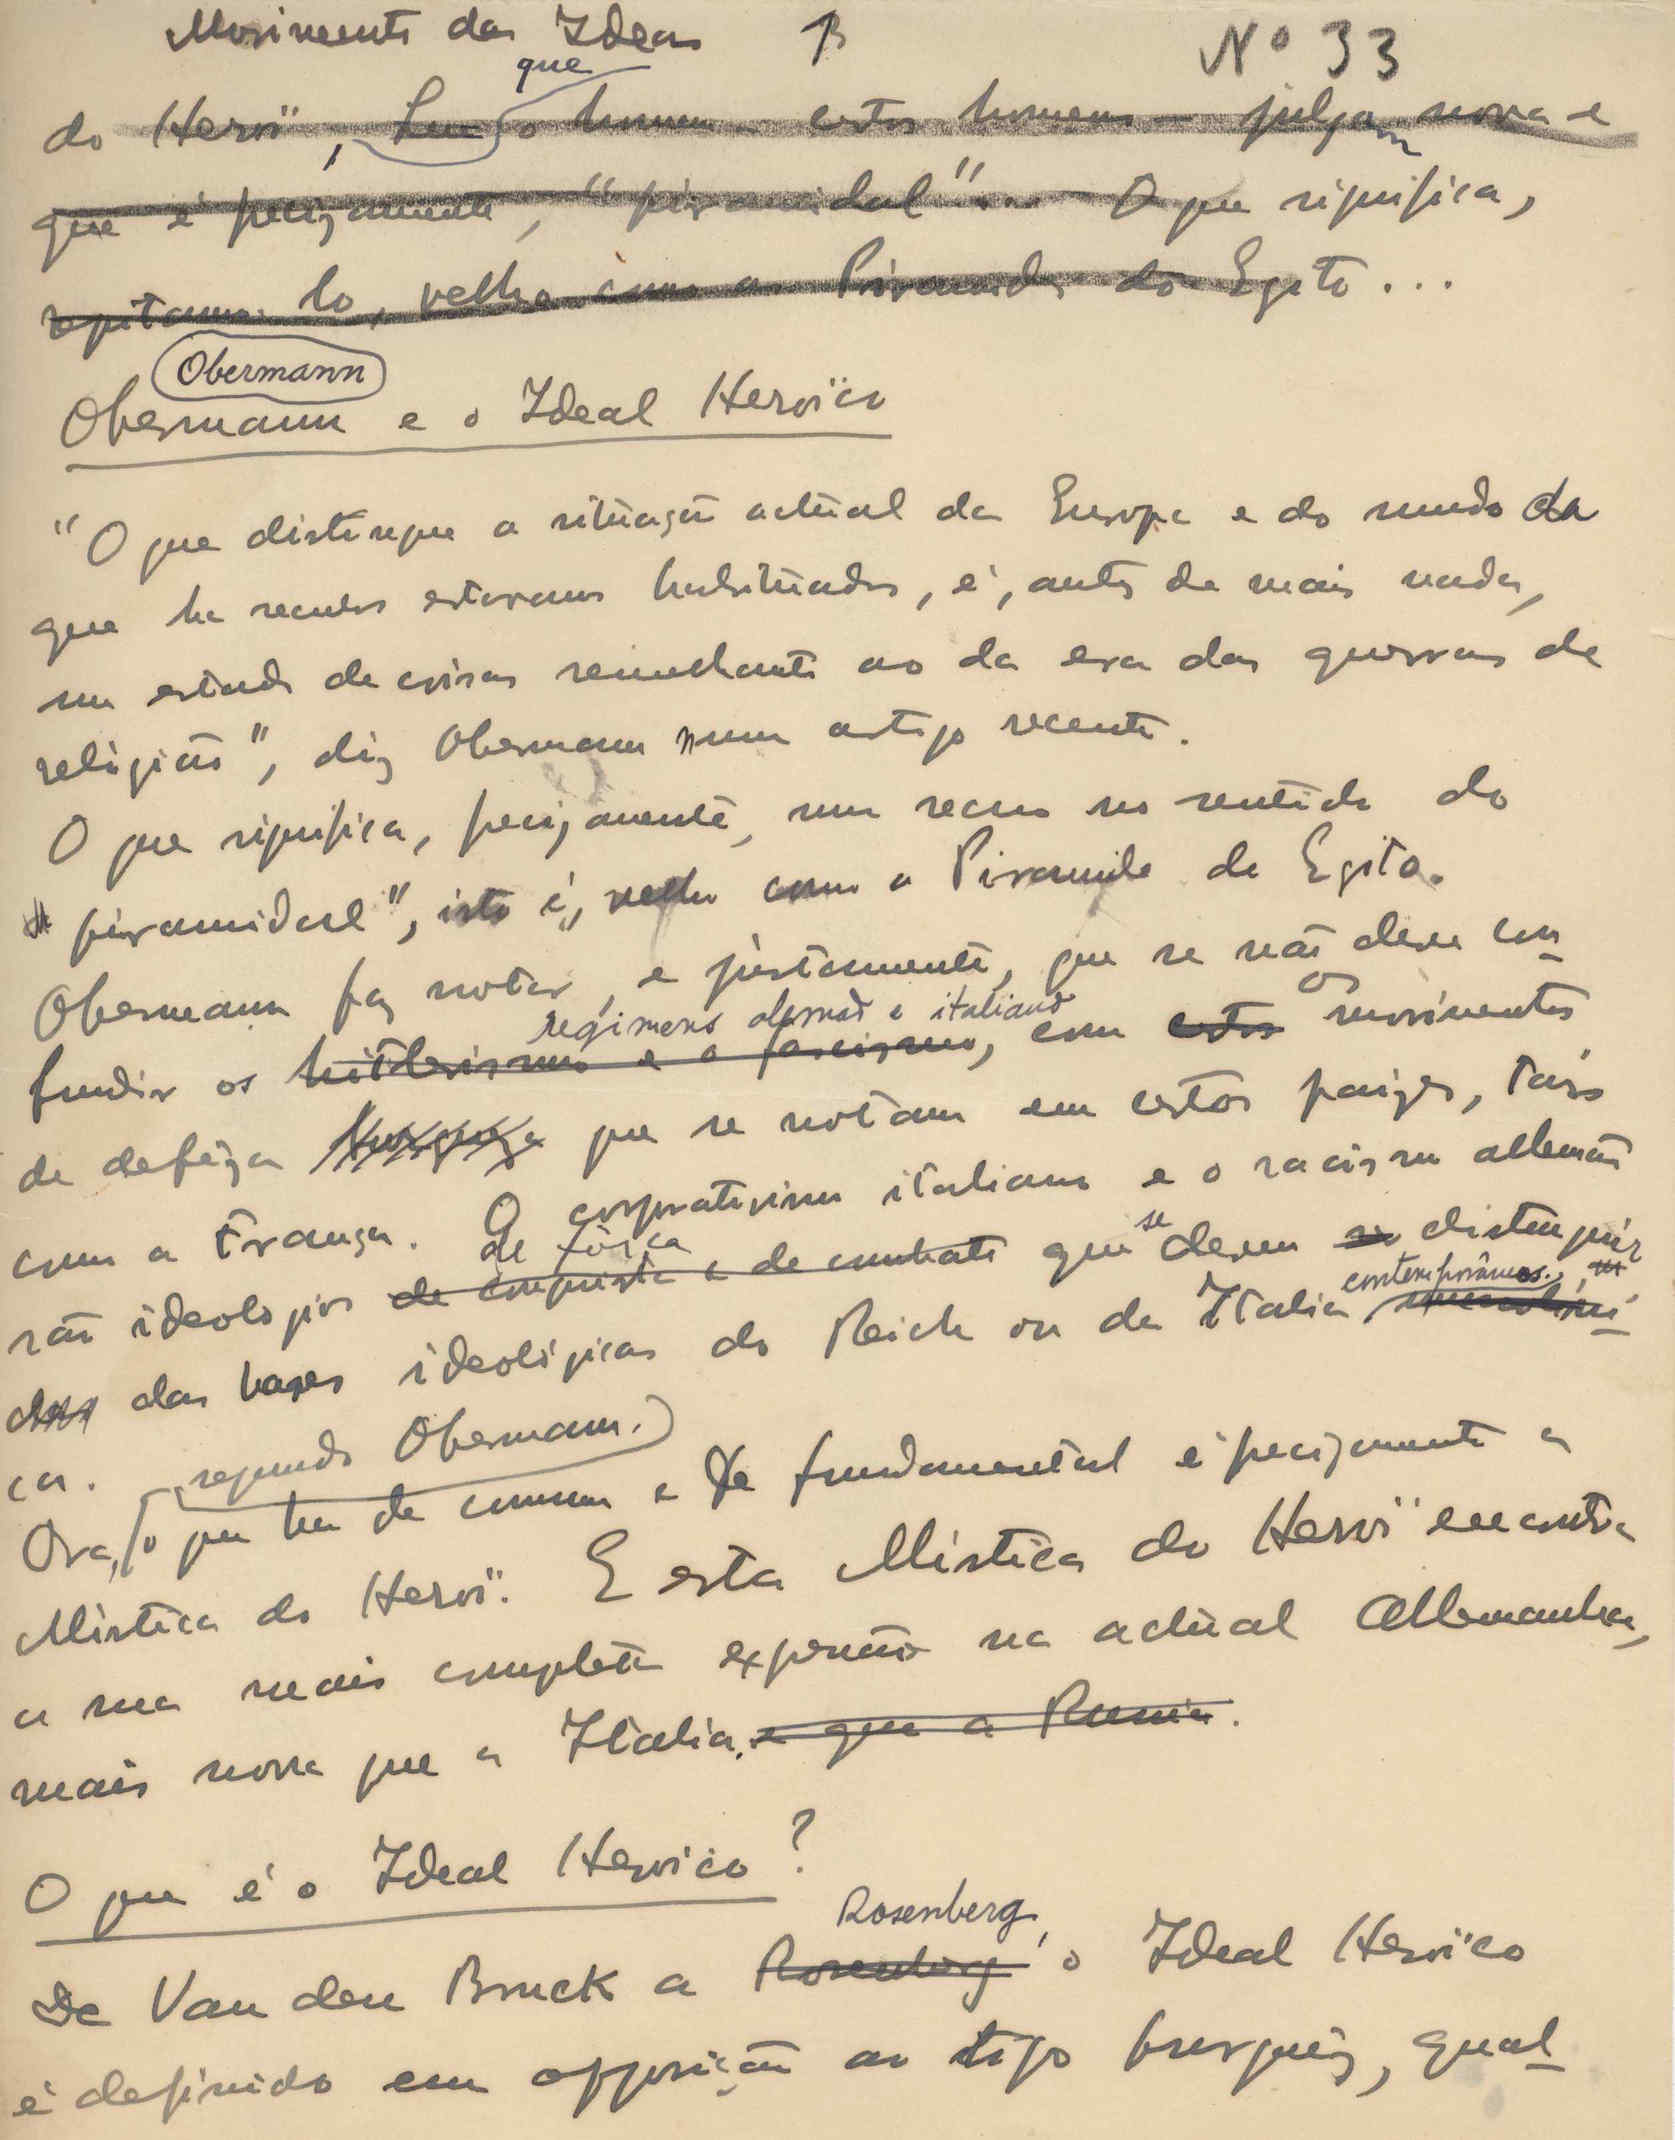 Movimento das Ideas B Nº 33
que
do Heroï, o homem certos homens julgam nova e
que é precizamente, "piramidal"... O que significa,
repitamo-lo, velha como as Piramides do Egito...
Obermann
Obermann e o Ideal Heroïco
"O que distingue a situação actual da Europa e do mundo da
que ha seculos estavamos habituados, é, antes de mais nada,
um estado de coisas semelhante ao da era das guerras de
religião", diz Obermann num artigo recente.
O que significa, precizamente, um recuo no sentido do
"piramidal", isto é, velho como a Piramide de Egito.
Obermann faz notar, e justamente, que se não deve con-
regimens alemão e italiano os
fundir os hitlerismo e o fascismo, com estos movimentos
de defeza burgueza que se notam em certos paizes, tais
como a França. O corporativismo italiano e o racismo allemão
de fôrça se
são ideologias de conquista e de combate que devem se distinguir
contemporâneos.
das bases ideológicas do Reich ou da Italia
ca. segundo Obermann.
Ora, o que ha de comum e de fundamental é precizamente a
Mistica do Heroï. E esta Mistica do Heroï encontra
a sua mais completa expressão na actual Allemanha,
mais nova que a Italia. e que a Russia.
O que é o Ideal Heroico?
Rosenberg,
De Van den Bruck a Rosenberg o Ideal Heroïco
é definido em opposição ao tipo burguêz, qual-